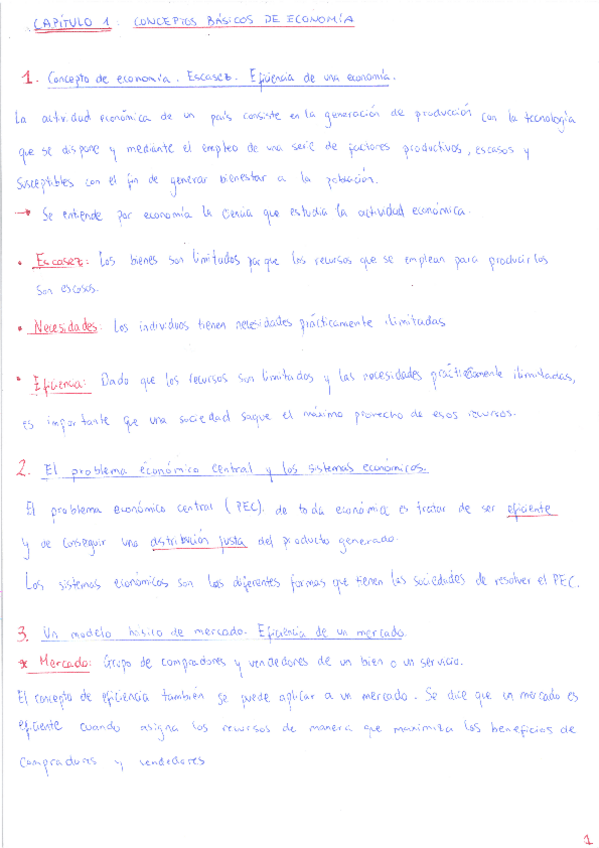 CAPÍTULO 1: CONCEPTOS BÁSICOS DE ECONOMÍA
1. Concepto de economía. Escasez. Eficiencia de una economía.
La actividad económica de un país consiste en la generación de producción con la tecnología
que se dispone y mediante el empleo de una serie de factores productivos, escasos y
susceptibles con el fin de generar bienestar a la población.
→ Se entiende por economía la ciencia que estudia la actividad económica.
• Escasez: Los bienes son limitados porque los recursos que se emplean para producirlos
son escasos.
• Necesidades: Los individuos tienen necesidades prácticamente ilimitadas
• Eficiencia: Dado que los recursos son limitados y las necesidades prácticamente ilimitadas,
es importante que una sociedad saque el máximo provecho de esos recursos.
2. El problema económico central y los sistemas económicos.
El problema económico central (PEC). de toda economía es tratar de ser eficiente
y de conseguir una distribución justa del producto generado.
Los sistemas económicos son las diferentes formas que tienen las sociedades de resolver el PEC.
3. Un modelo básico de mercado. Eficiencia de un mercado.
* Mercado: Grupo de compradores y vendedores de un bien o un servicio.
El concepto de eficiencia también se puede aplicar a un mercado. Se dice que un mercado es
eficiente cuando asigna los recursos de manera que maximiza los beneficios de
compradores y vendedores
1